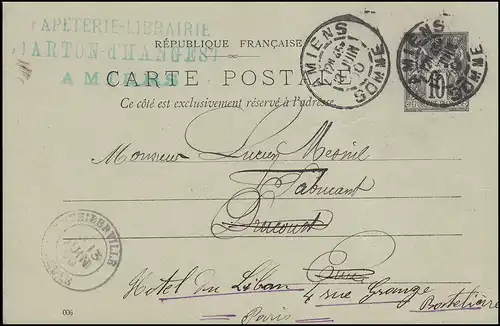 PAPETERIE-LIBRAIRIE
MARTON-d'HANGEST
AMIENS
RÉPUBLIQUE FRANÇAISE
CARTE POSTALE
Ce côté est exclusivement réservé à l'adresse.
AMIENS
JUIN
SOMME
AMIENS
SOMME
10
Monsieur Lucien Mesnil
Fabricant
Drucourt
Eure
Hotel du Liban
4 rue Grange Batelière
Paris
THIBERVILLE
13
JUIN
EURE
006